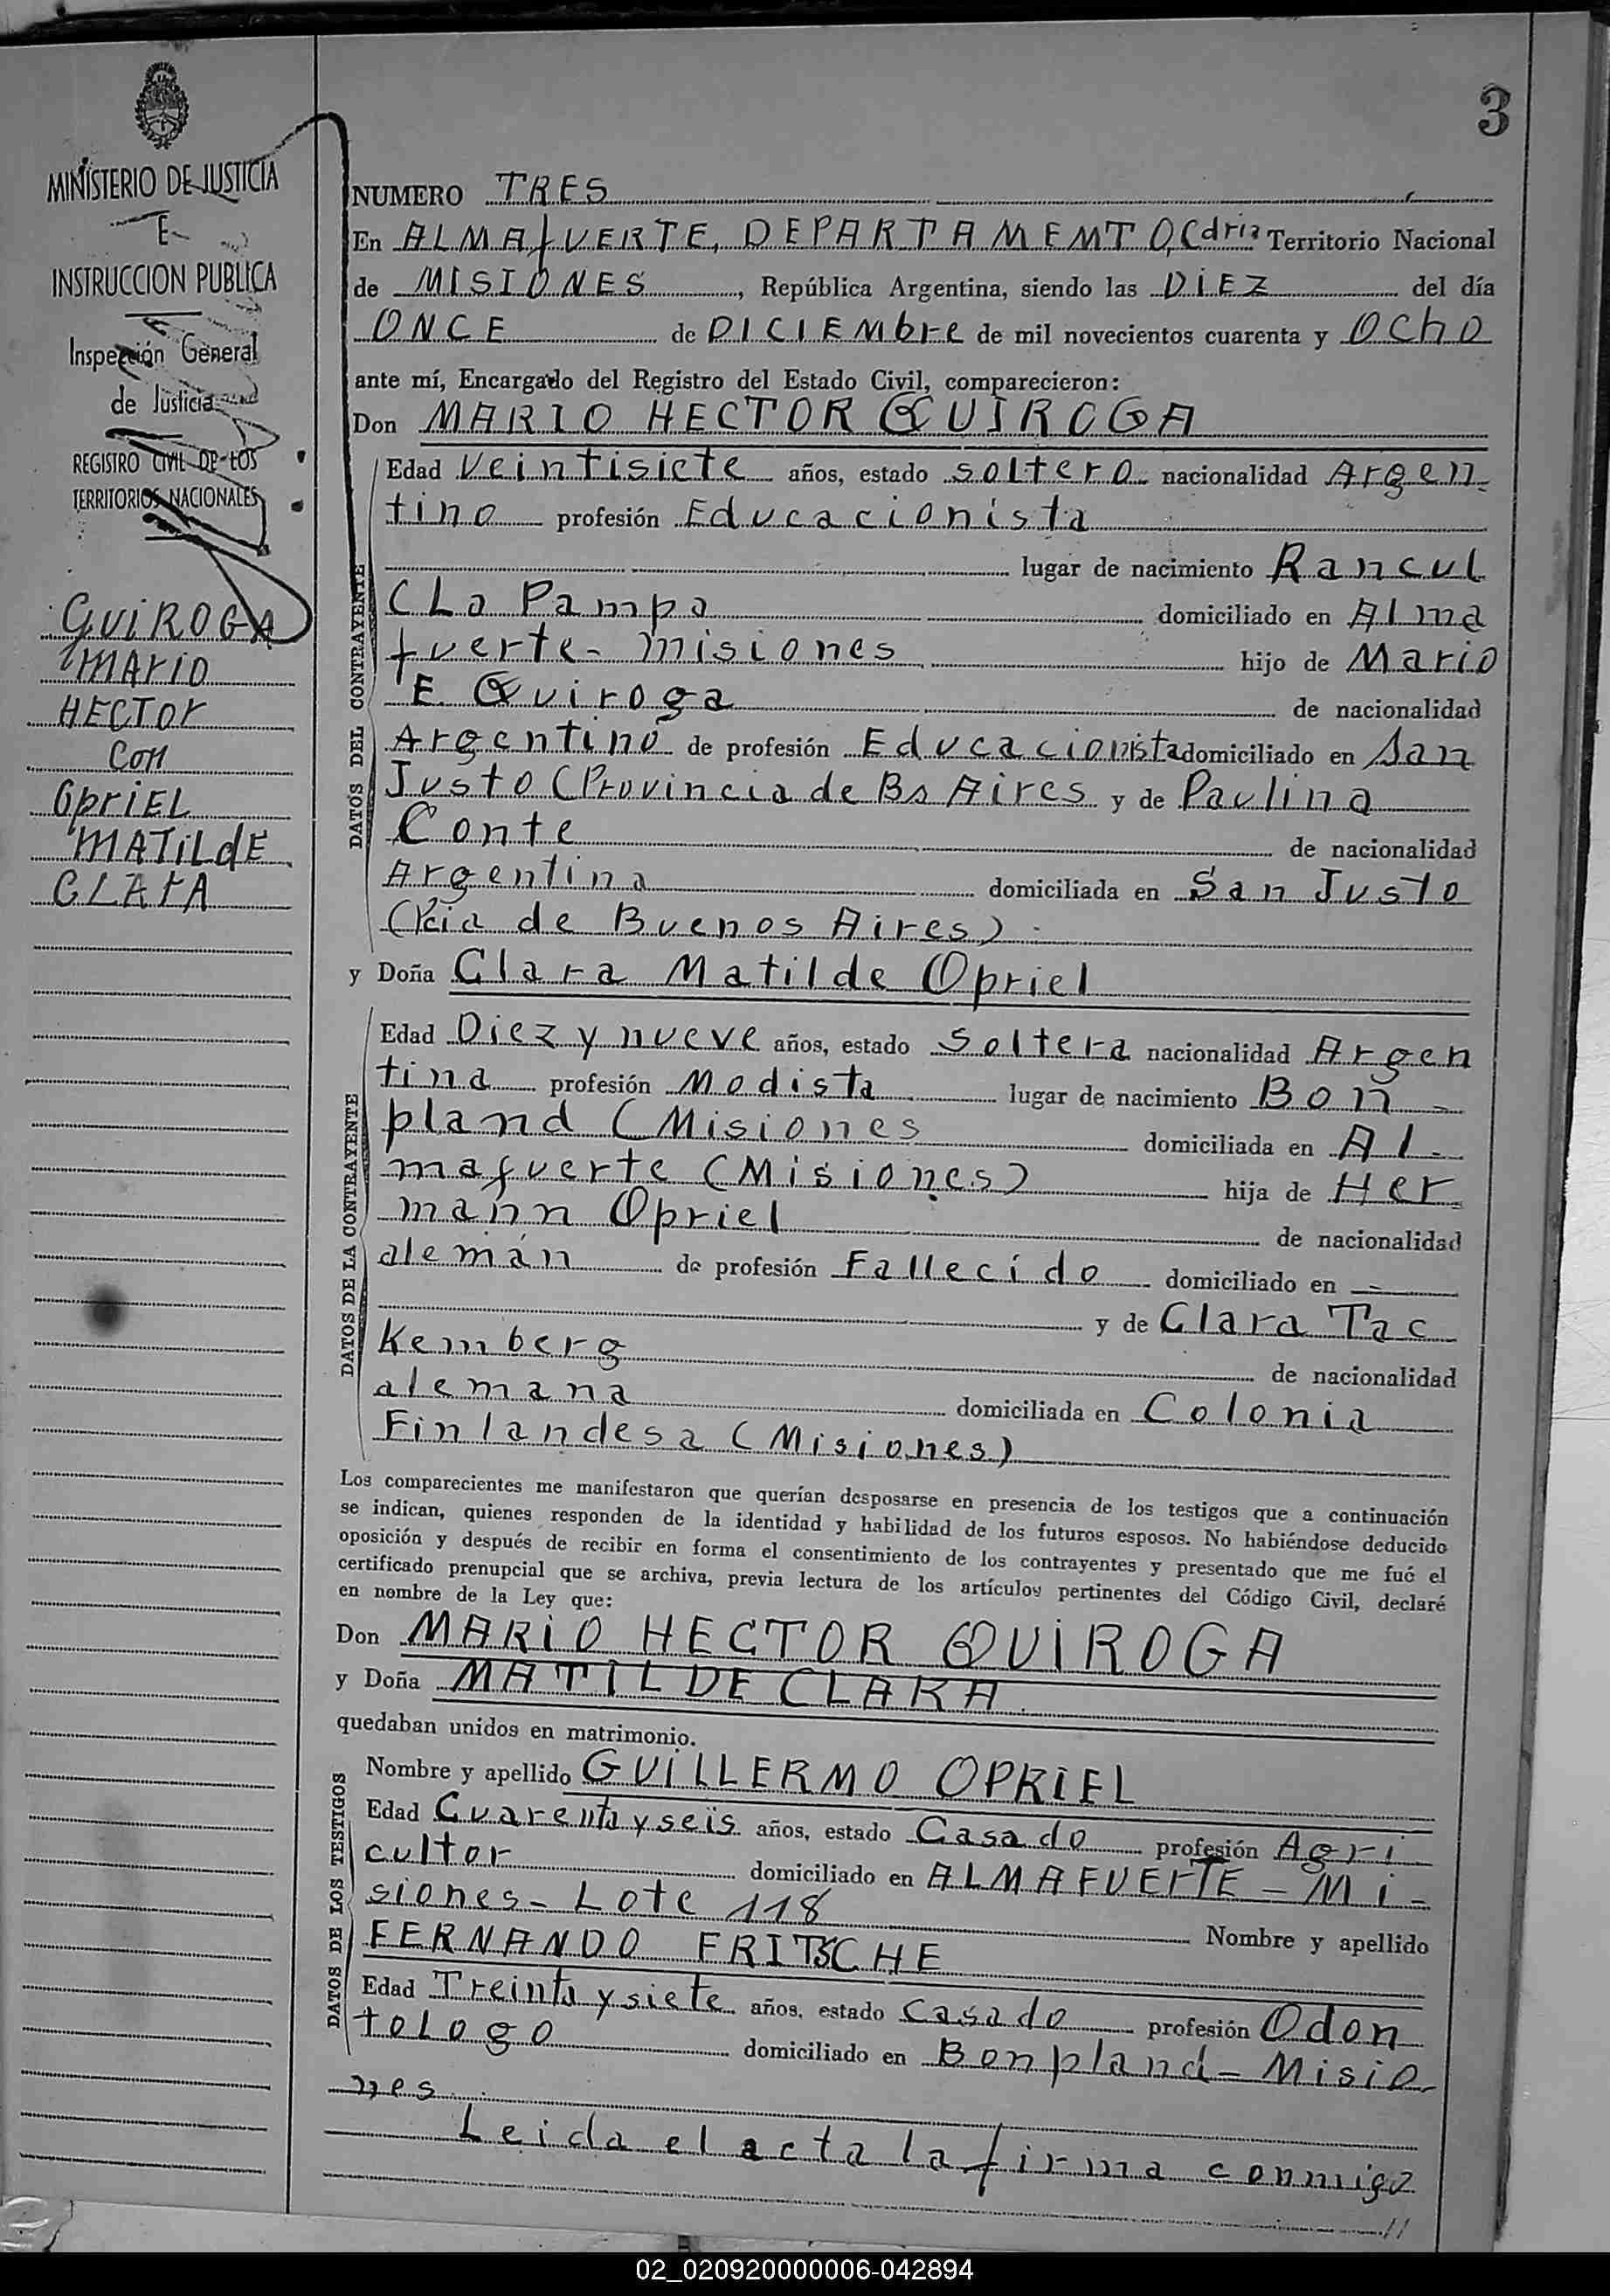 3
MINISTERIO DE JUSTICIA
E
INSTRUCCION PUBLICA
Inspección General
de Justicia
REGISTRO CIVIL DE LOS
TERRITORIOS NACIONALES
QUIROGA
MARIO
HECTOR
CON
OPRIEL
MATILdE
CLARA
NUMERO TRES
En ALMAfUERTE, DEPARTAMENTO, Cdria Territorio Nacional
de MISIONES, República Argentina, siendo las DIEZ del día
ONCE de DICIEMbre de mil novecientos cuarenta y OchO
ante mí, Encargado del Registro del Estado Civil, comparecieron:
Don MARIO HECTOR QUIROGA
DATOS DEL CONTRAYENTE
Edad veintisiete años, estado soltero nacionalidad Argen-
tino profesión Educacionista
lugar de nacimiento Rancul
(La Pampa domiciliado en Alma
fuerte- misiones hijo de Mario
E. Quiroga de nacionalidad
Argentino de profesión Educacionista domiciliado en San
Justo (Provincia de Bs Aires y de Paulina
Conte de nacionalidad
Argentina domiciliada en San Justo
(Pcia de Buenos Aires)
y Doña Clara Matilde Opriel
DATOS DE LA CONTRAYENTE
Edad Diez y nueve años, estado Soltera nacionalidad Argen
tina profesión Modista lugar de nacimiento Bon-
pland (Misiones domiciliada en Al-
mafuerte (Misiones) hija de Her
mann Opriel de nacionalidad
alemán de profesión Fallecido domiciliado en -
y de Clara Tac
Kemberg de nacionalidad
alemana domiciliada en Colonia
Finlandesa (Misiones)
Los comparecientes me manifestaron que querían desposarse en presencia de los testigos que a continuación
se indican, quienes responden de la identidad y habilidad de los futuros esposos. No habiéndose deducido
oposición y después de recibir en forma el consentimiento de los contrayentes y presentado que me fué el
certificado prenupcial que se archiva, previa lectura de los artículos pertinentes del Código Civil, declaré
en nombre de la Ley que:
Don MARIO HECTOR QUIROGA
y Doña MATILDE CLARA
quedaban unidos en matrimonio.
DATOS DE LOS TESTIGOS
Nombre y apellido GUILLERMO OPRIEL
Edad Cuarenta y seis años, estado Casado profesión Agri
cultor domiciliado en ALMAFUERTE - Mi-
siones- Lote 118 Nombre y apellido
FERNANDO FRITSCHE
Edad Treinta y siete años, estado casado profesión Odon
tologo domiciliado en Bonpland- Misio
nes
Leida el acta la firma conmigo
//
02_020920000006-042894